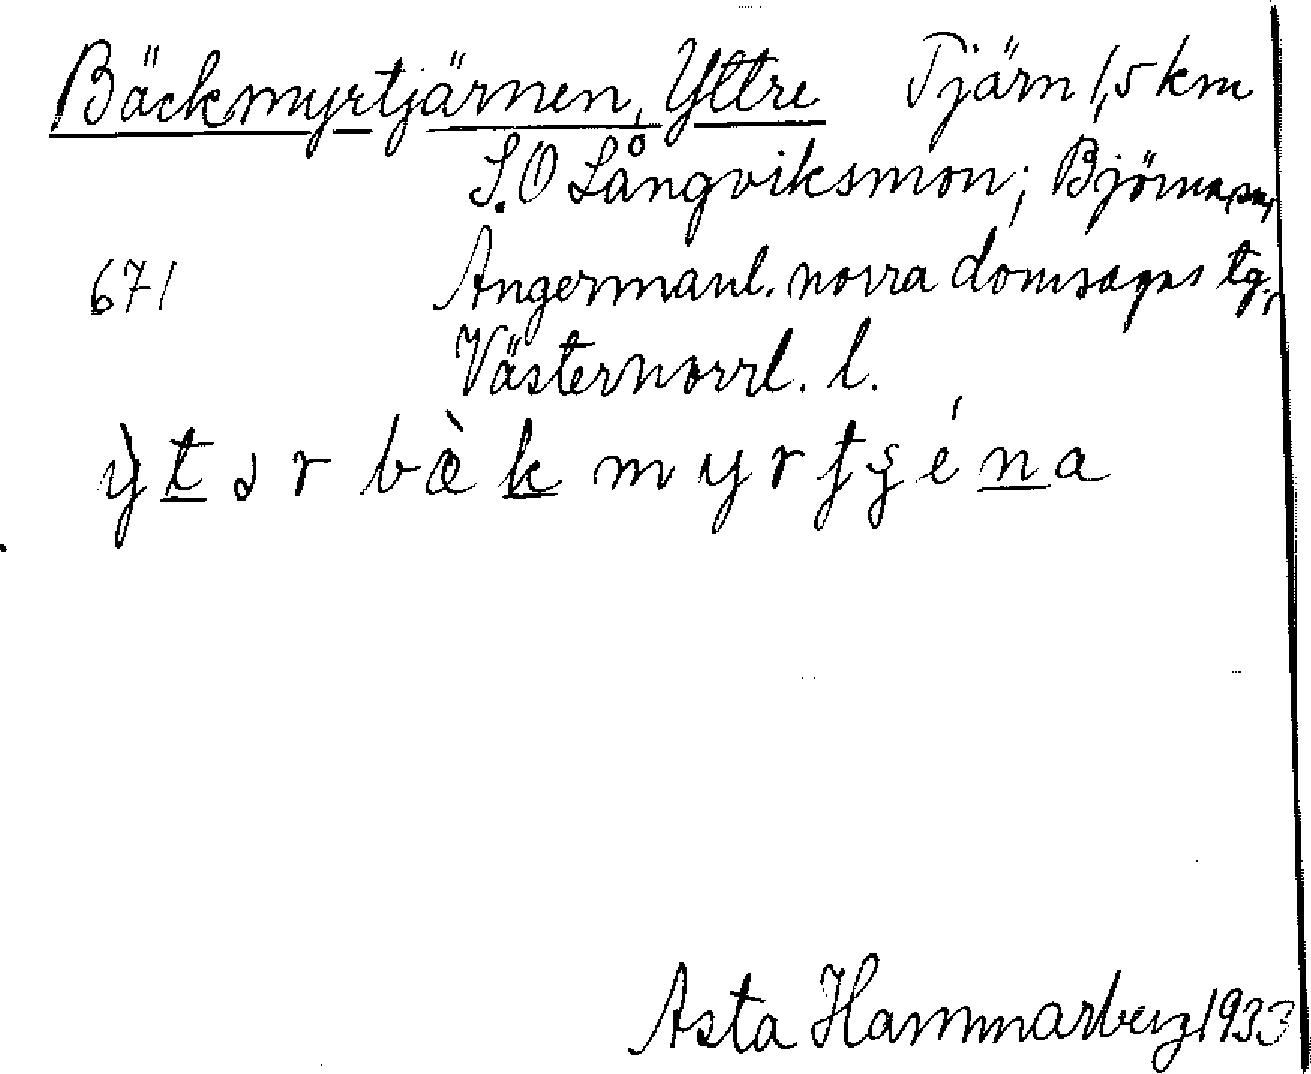 Bäckmyrtjärnen, Yttre Tjärn 1,5 km
S.O Långviksmon; Björna sn,
671 Angermanl. norra domsagas tg.,
Västernorrl. l.
ỳtər bæ̀kmyrtʂéna
Asta Hammarberg 1933